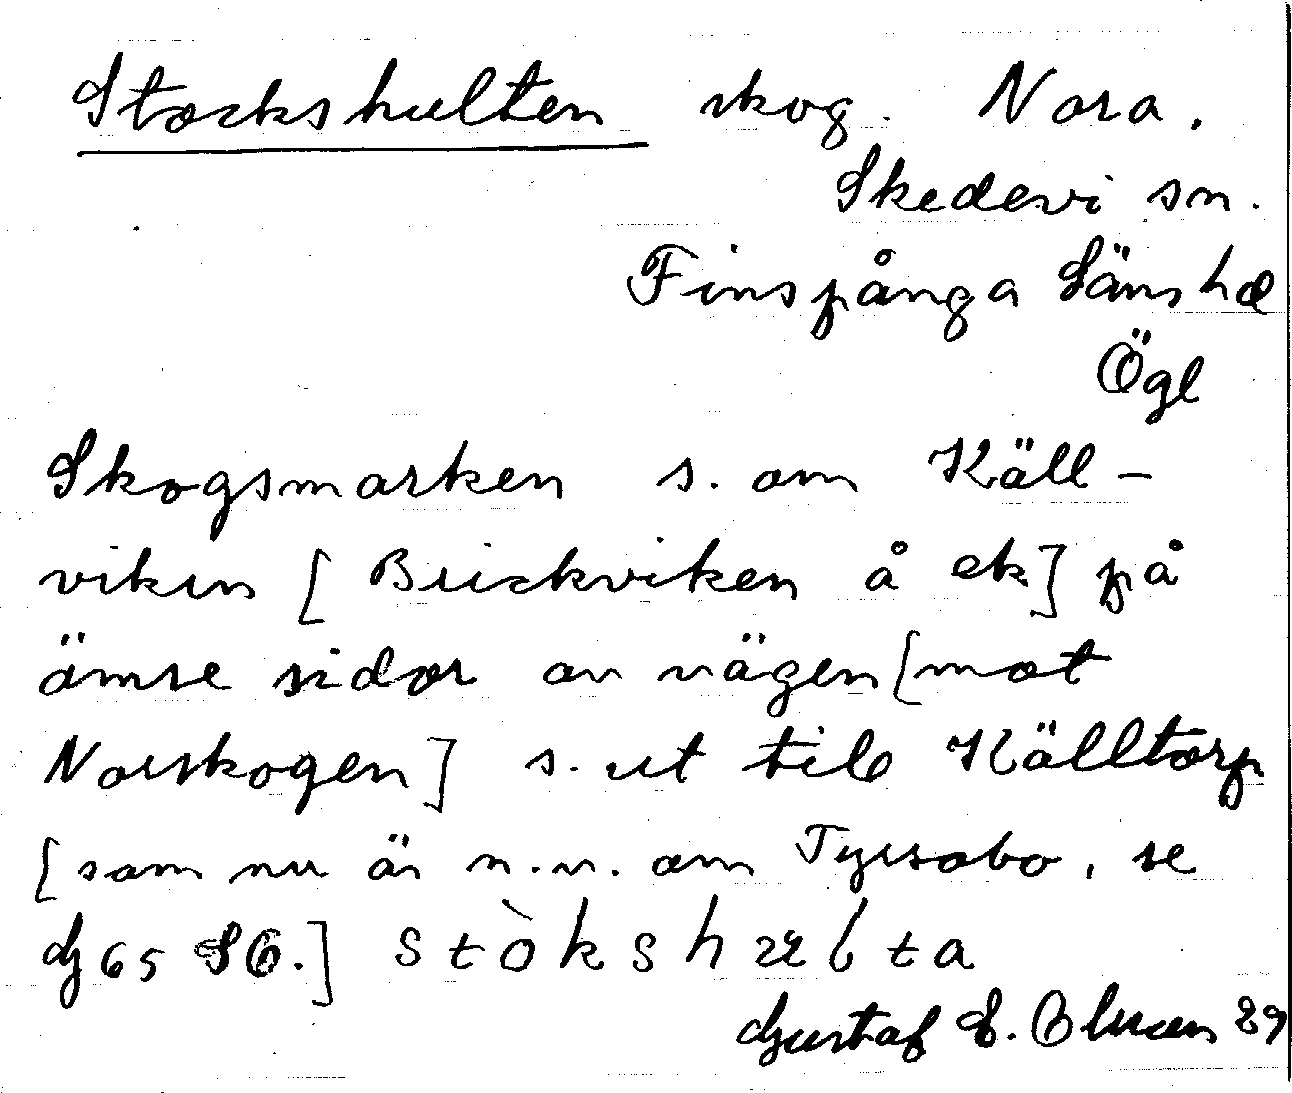 Stockshulten skog. Nora.
Skedevi sn.
Finspånga Länshd
Ögl
Skogsmarken s. om Käll-
viken [Buckviken å ek] på
ömse sidor av vägen [mot
Norskogen] s. ut till Källtorp
[som nu är n.v. om
se
65 SO.] stòkshulta
Gustaf E. Olsson 29